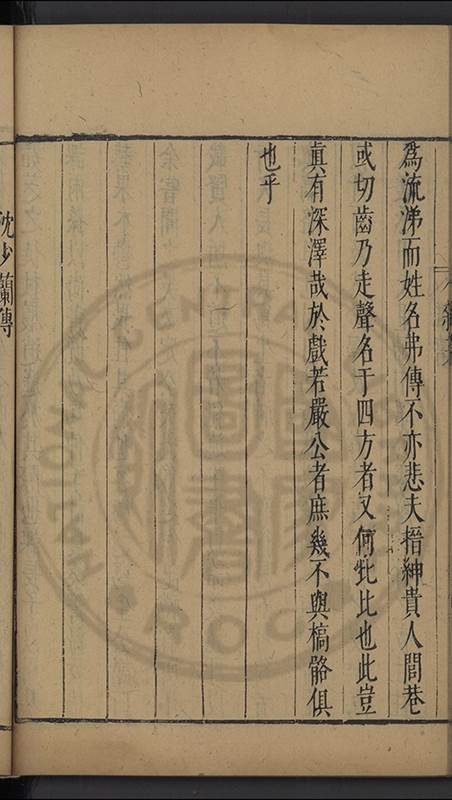 爲流涕而姓名弗傳不亦悲夫搢紳貴人閭巷
或切齒乃走聲名于四方者又何比比也此豈
眞有深澤哉於戲若嚴公者庶幾不與槁骼俱
也乎
沈少蘭傳